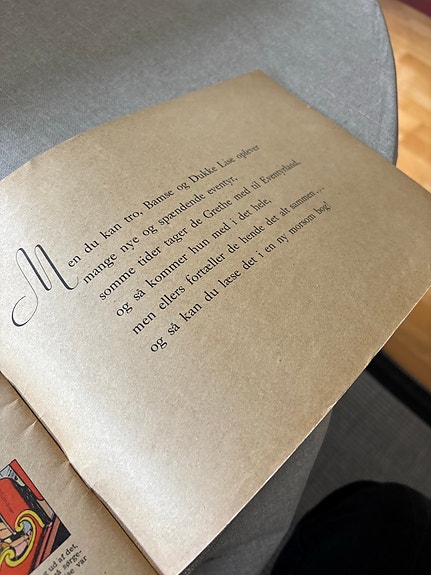 Men du kan tro, Bamse og Dukke Lise oplever
mange nye og spændende eventyr,
somme tider tager de Grethe med til Eventyrland,
og så kommer hun med i det hele,
men ellers fortæller de hende det alt sammen...
og så kan du læse det i en ny morsom bog!
ud af det,
så sørge-
se var